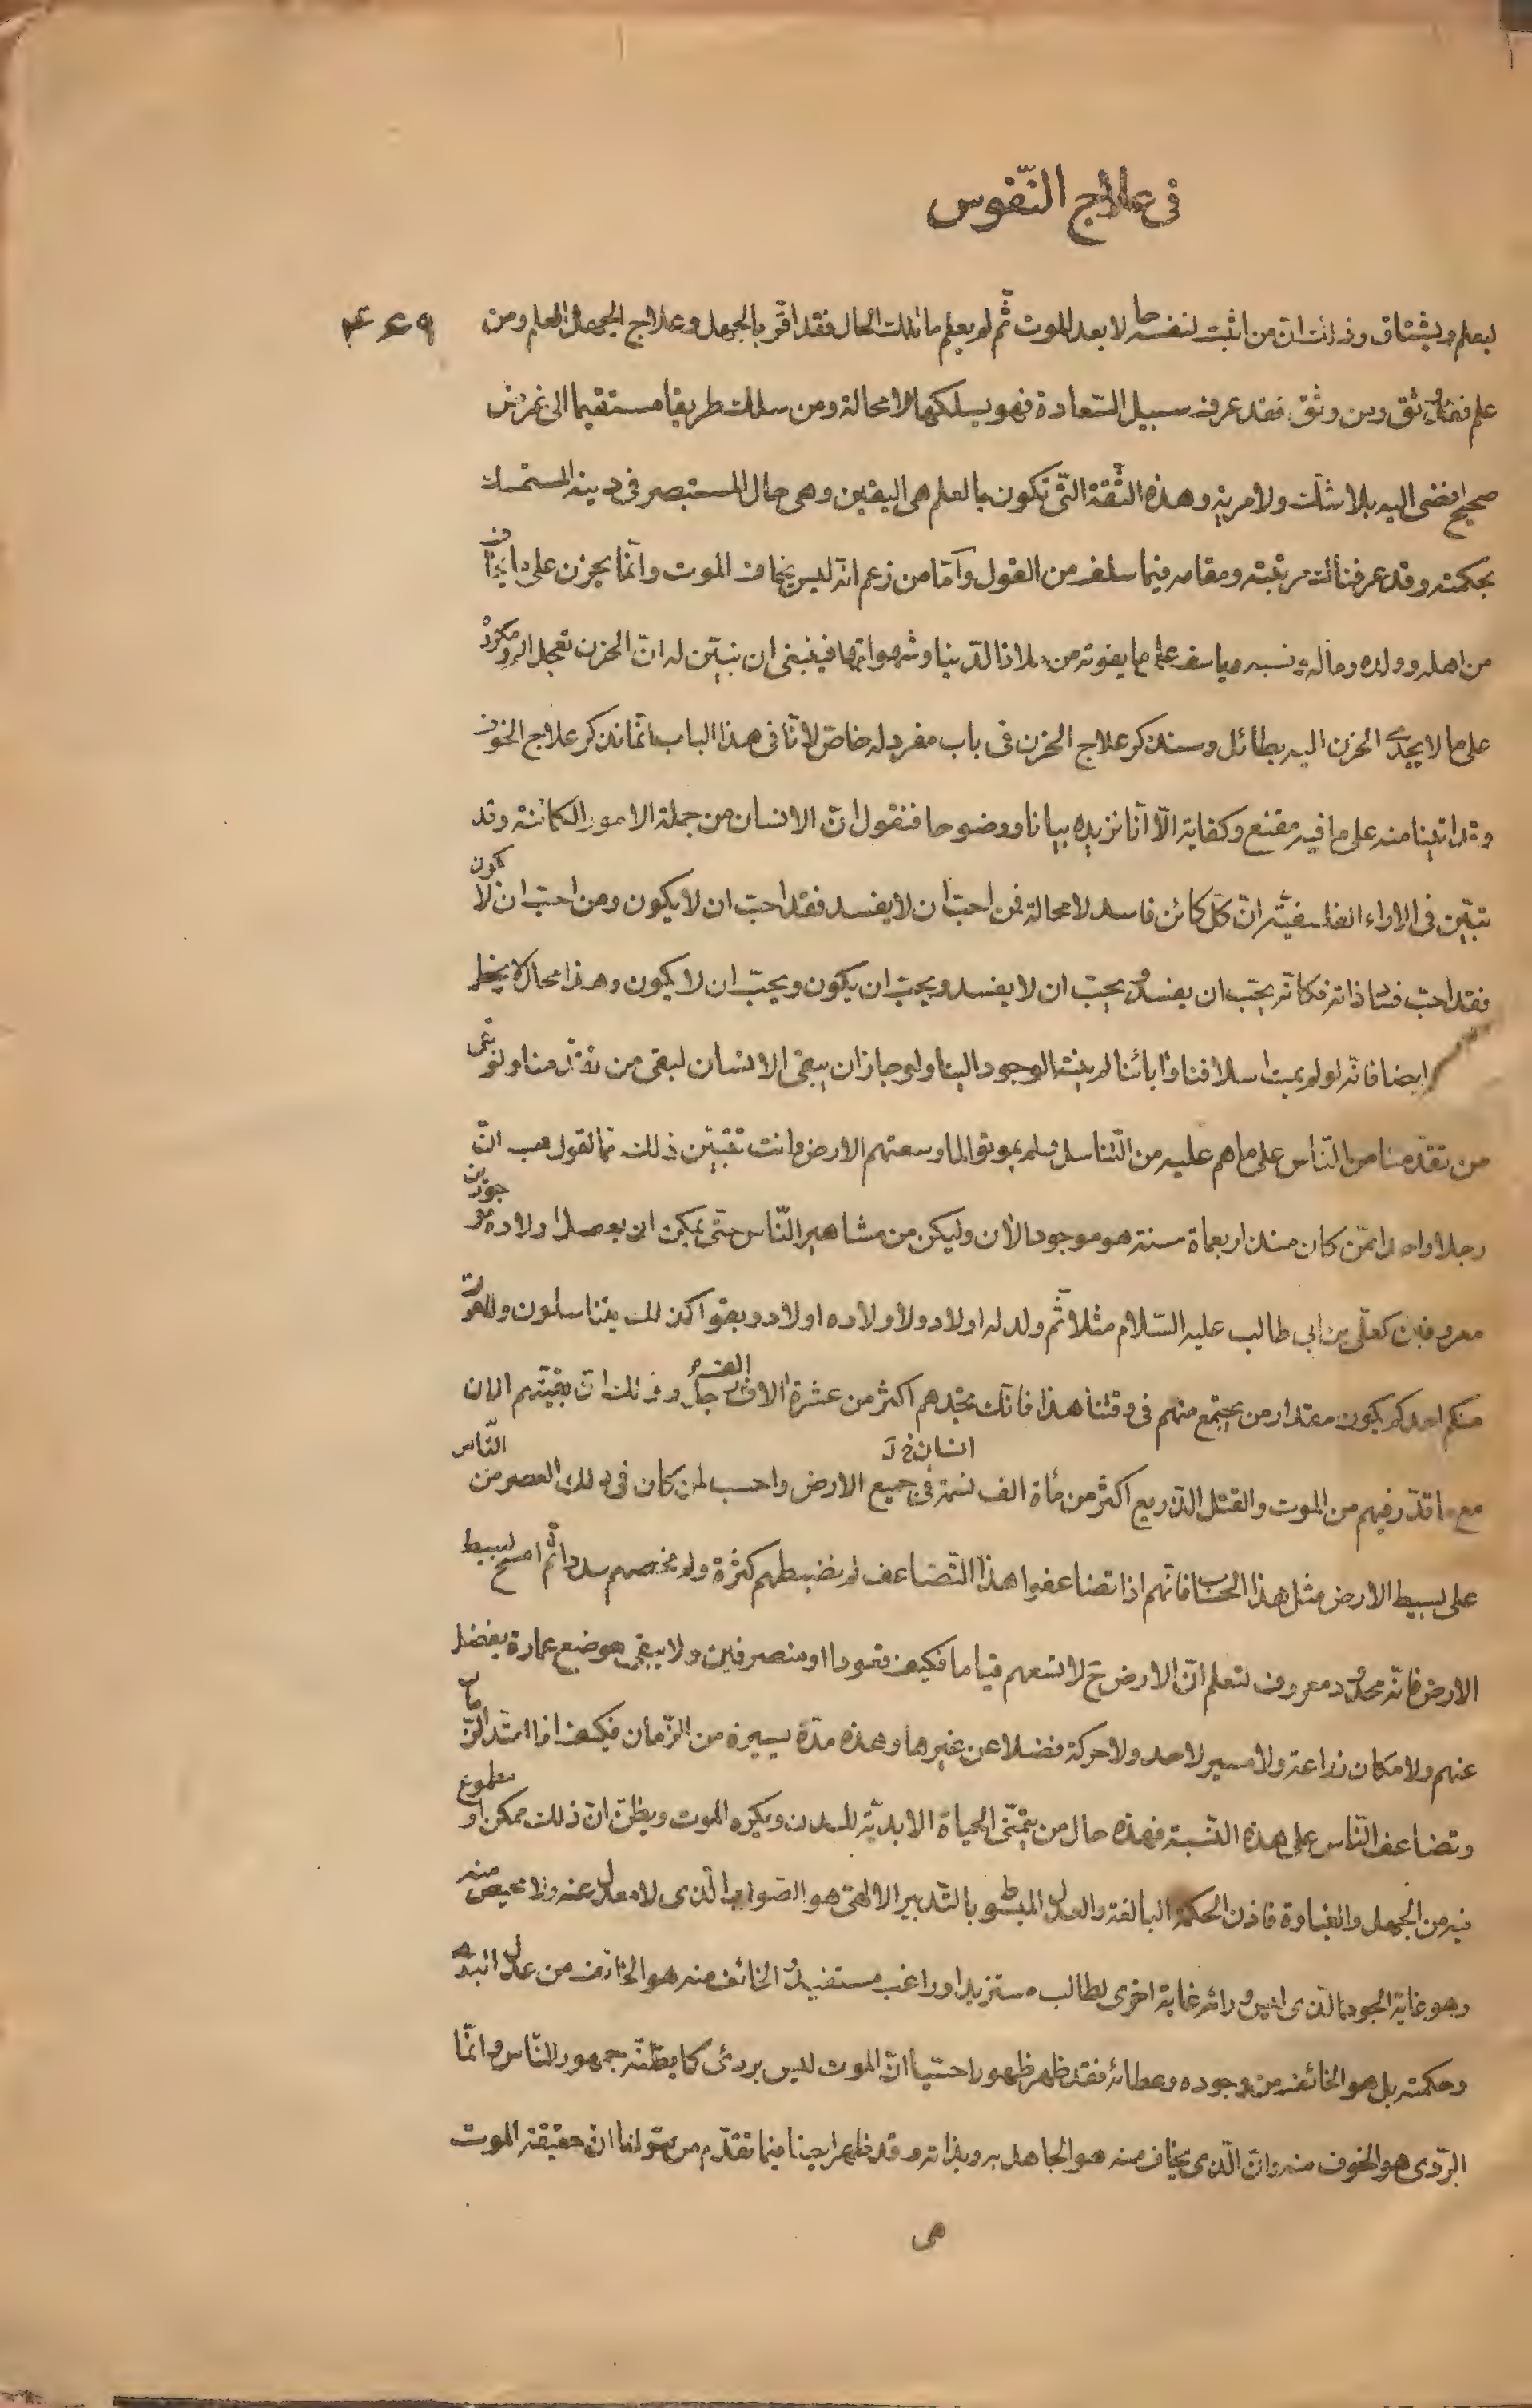 فى علاج النّفوس
٤٤٩
ليعلم ويشتاق وذلك انّ من اثبت لنفسه حالا بعد الموت ثّم لم يعلم ما تلك الحال فقد اقرّ بالجهل وعلاج الجهل العلم ومن
علم فقد وثق ومن وثق فقد عرف سبيل السّعادة فهو يسلكها لا محالة ومن سلك طريقا مستقيما الى غرض
صحيح افضى اليه بلا شك ولا مرية وهذه الثّقة الّتى تكون بالعلم هى اليقين وهى حال المستبصر فى دينه المستمسك
بحكمته وقد عرفناك مرتبته ومقامه فيما سلف من القول وآمّا من زعم انّه ليس يخاف الموت وانّما يحزن على ما يخلف
من اهله وولده وماله ونسبه وياسف على ما يفوته من ملاذ الدّنيا وشهواتها فينبغى ان نبيّن له انّ الحزن تعجل الم ومكروه
على ما لا يجدى الحزن اليه بطائل وسنذكر علاج الحزن فى باب مفرد له خاصّ لانّا فى هذا الباب انّما نذكر علاج الخوف
وقد اتينا منه على ما فيه مقنع وكفاية الّا انّا نزيده بيانا ووضوحا فنقول انّ الانسان من جملة الامور الكائنة وقد
تبيّن فى الاراء الفلسفيّة انّ كلّ كائن فاسد لا محالة فمن احبّ ان لا يفسد فقد احبّ ان لا يكون ومن احبّ ان لا يكون
فقد احبّ فساد ذاته فكانّه يحبّ ان يفسد ويحبّ ان لا يفسد ويحبّ ان يكون ويحبّ ان لا يكون وهذا محال لا يخطر
ايضا فانّه لو لم يمت اسلافنا واٰبائنا لم ينته الوجود الينا ولو جاز ان يبقى الانسان لبقى من تقدّمنا ولو بقى
من تقدّمنا من النّاس على ما هم عليه من التّناسل ولم يموتوا لما وسعتهم الارض وانت تتبيّن ذلك ممّا نقول هب انّ
رجلا واحدا ممّن كان منذ اربعمأة سنة هو موجود الاٰن وليكن من مشاهير النّاس حتّى يمكن ان يحصل اولاده موجودين
معروفين كعلّى بن ابى طالب عليه السّلام مثلا ثّم ولد له اولاد ولاولاده اولاد وبقوا كذلك يتناسلون ولا يموت
منكم احد كم يكون مقدار من يجتمع منهم فى وقتنا هذا فانّك تجدهم اكثر من عشرة الاف الف رجل وذلك انّ بقيّتهم الاٰن
انسان خ ل
مع ما قدّر فيهم من الموت والقتل الذّريع اكثر من مأة الف نسمة فى جميع الارض واحسب لمن كان فى ذلك العصر من النّاس
على بسيط الارض مثل هذا الحساب فانّهم اذا تضاعفوا هذا التّضاعف لم نضبطهم كثرة ولم نحصهم عددا ثّم امسح بسيط
الارض فانّه محدود معروف لتعلم انّ الارض ح لا تسعهم قياما فكيف قعودا او منصرفين ولا يبقى موضع عمارة يفضل
عنهم ولا مكان زراعة ولا مسير لاحد ولا حركة فضلا عن غيرها وهذه مدّة يسيرة من الزّمان فكيف اذا امتدّ الزّمان
وتضاعف النّاس على هذه النّسبة فهذه حال من يتمنّى الحياة الابديّة للبدن ويكره الموت ويظنّ انّ ذلك ممكن او مطموع
فيه من الجهل والغباوة فاذن الحكمة البالغة والعدل المبسوط بالتّدبير الالٰهى هو الصّواب الّذى لا معدل عنه ولا محيص منه
وهو غاية الجود الّذى ليس ورائه غاية اخرى لطالب مستزيد او راغب مستفيد والخائف منه هو الخائف من عدل اللّه
وحكمته بل هو الخائف من وجوده وعطائه فقد ظهر ظهورا حسّيا انّ الموت ليس بردئ كما يظنّه جمهور النّاس وانّما
الرّدى هو الخوف منه وانّ الّذى يخاف منه هو الجاهل به وبذاته وقد ظهر ايضا فيما تقدّم من قولنا انّ حقيقة الموت
هى